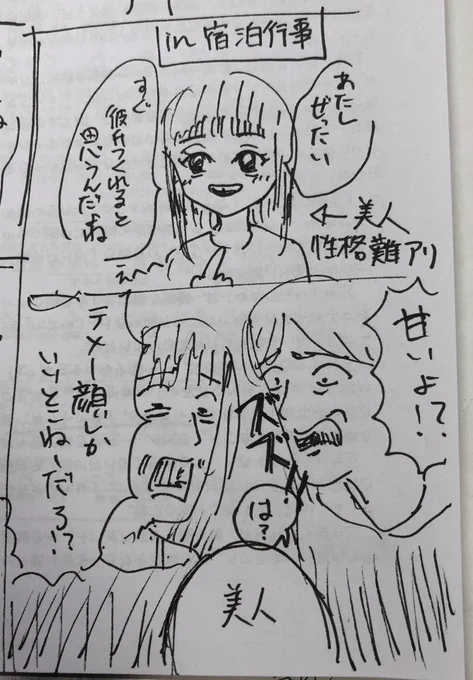 in 宿泊行事
あたし
ぜったい
すぐ
彼氏つくれると
思うんだよね
← 美人
性格難アリ
甘いよ!?
ズズ
テメ 顔しか
いいとこねーだろ!?
は?
美人